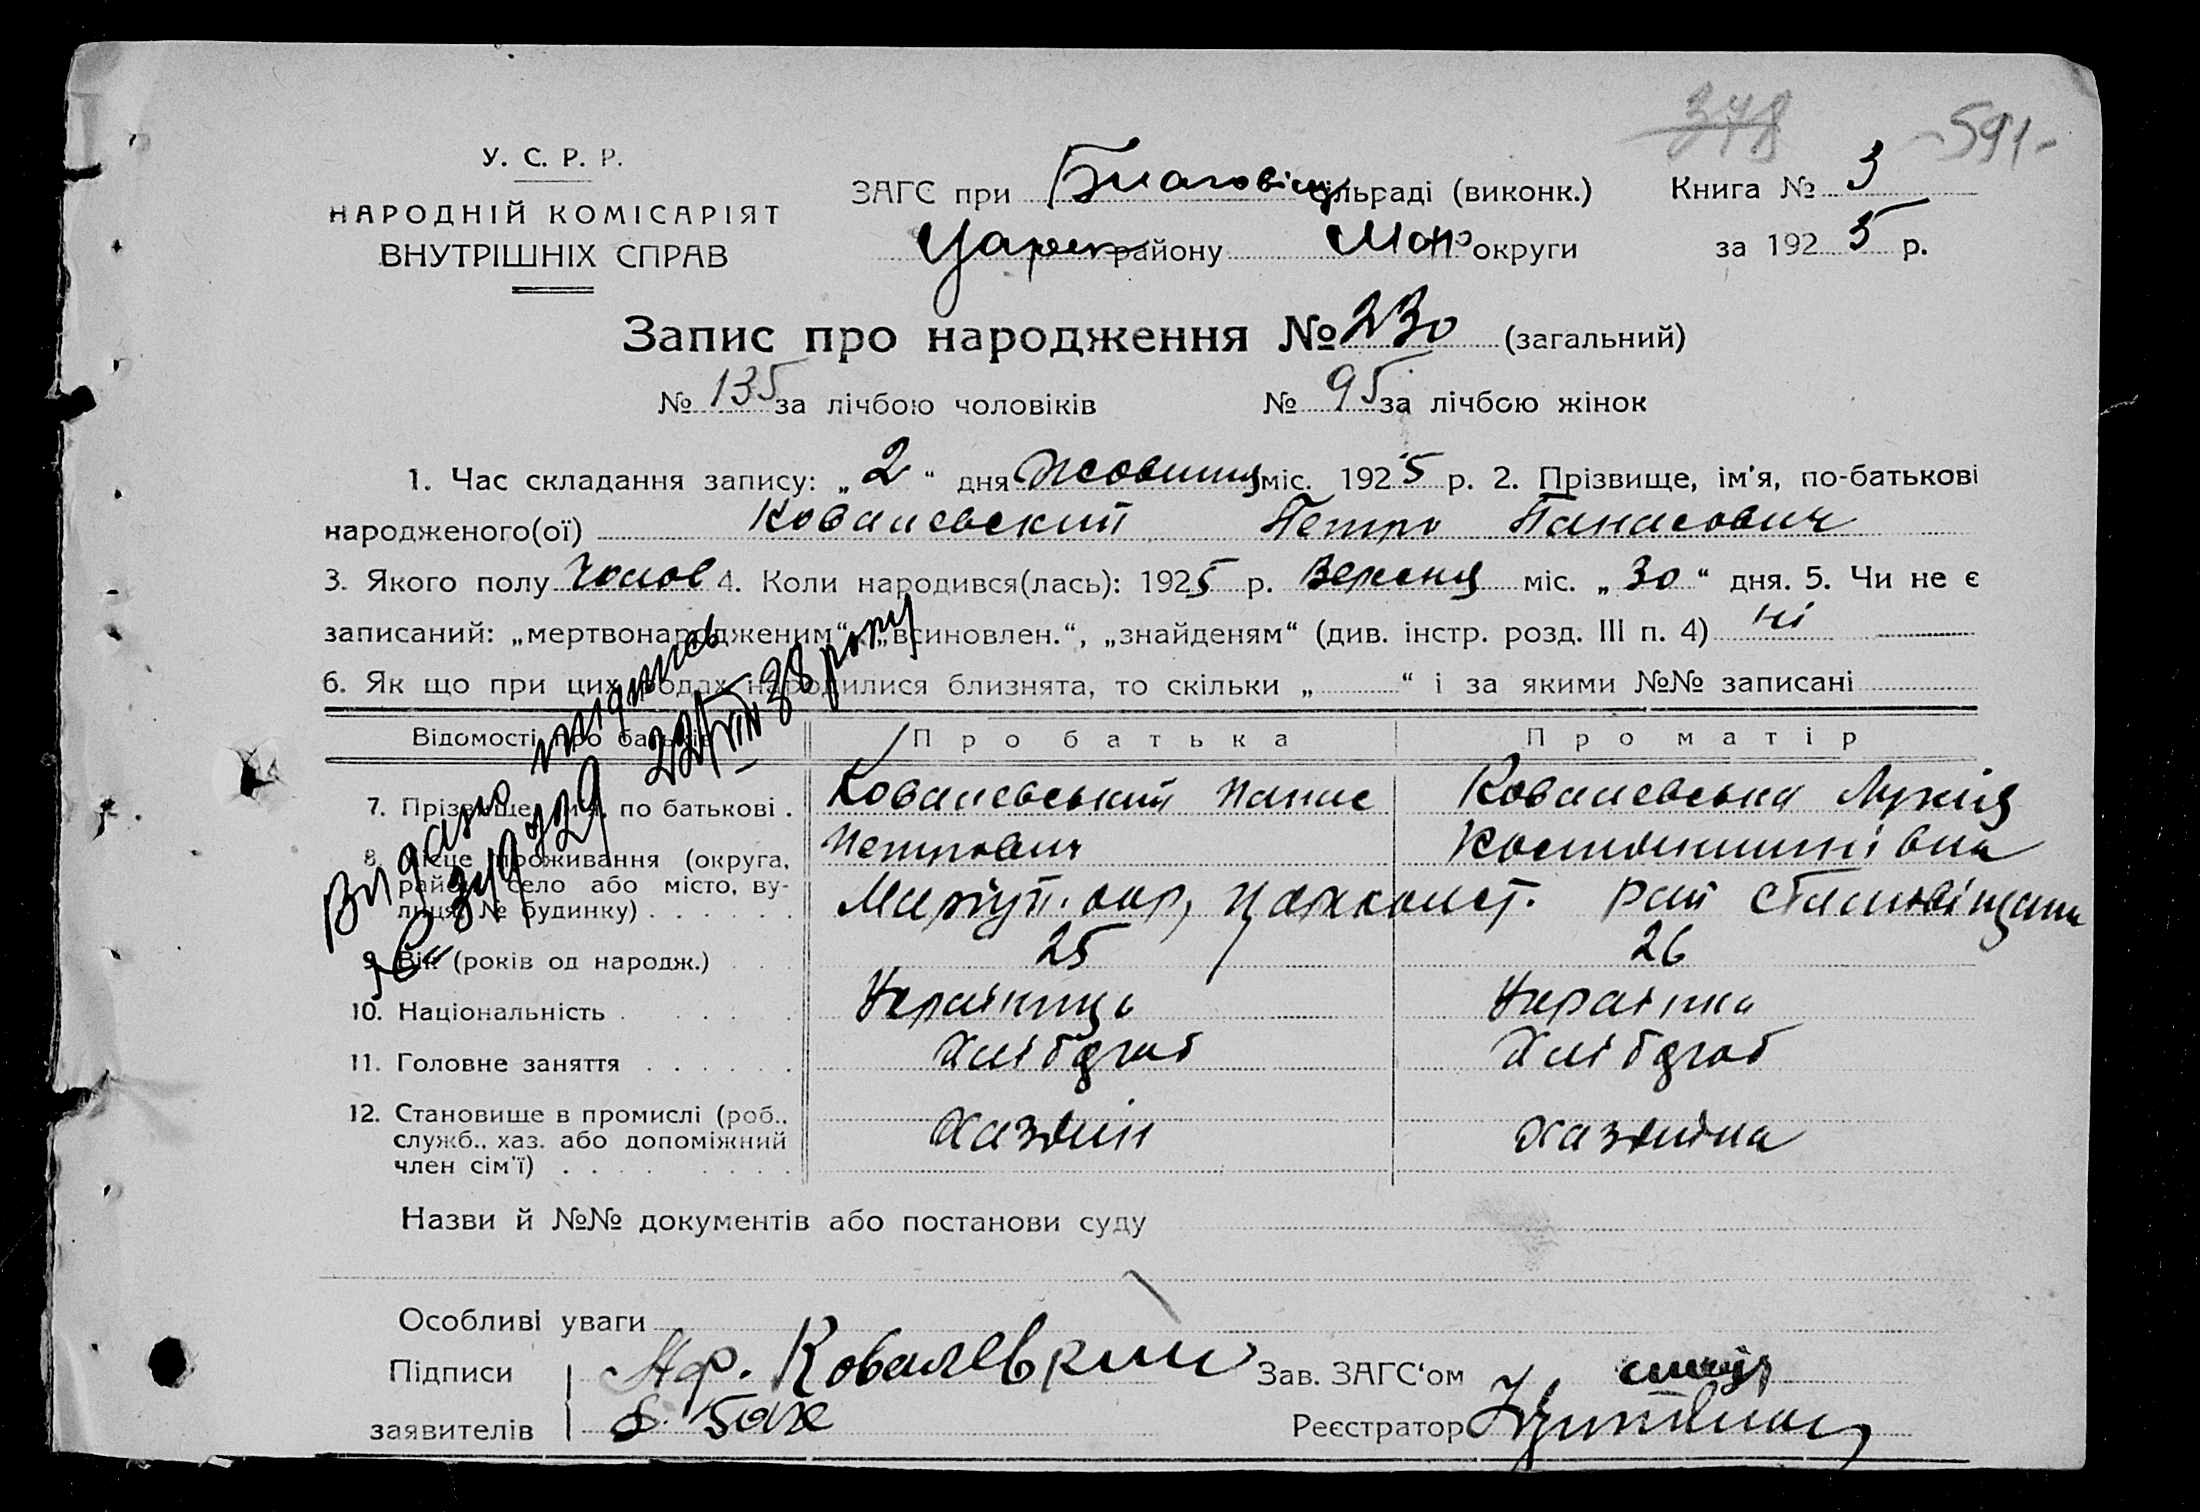 378 -591-
У. С. Р. Р.
НАРОДНІЙ КОМІСАРІЯТ
ВНУТРІШНІХ СПРАВ
ЗАГС при Благовіщ сільраді (виконк.) Книга № 3
Царек району округи за 1925 р.
Запис про народження № 230 (загальний)
№ 135 за лічбою чоловіків № 95 за лічбою жінок
1. Час складання запису: „2“ дня Жовтня міс. 1925 р. 2. Прізвище, ім'я, по-батькові
народженого(ої) Ковалевский Петро Панасович
3. Якого полу Чолов 4. Коли народився(лась): 1925 р. Вересня міс. „30“ дня. 5. Чи не є
записаний: „мертвонародженим“, „всиновлен.“, „знайденям“ (див. інстр. розд. III п. 4) ні
6. Як що при цих родах народилися близнята, то скільки „ “ і за якими №№ записані
Відомості про батьків Про батька Про матір
7. Прізвище, ім'я, по батькові . Ковалевський Панас Ковалевська Лукія
Петрович Костянтинівна
8. Місце проживання (округа, район, село або місто, вулиця, № будинку) . . . . . . Маріуп. окр, Царекокост. рай
9. Вік (років од народж.) 25 26
10. Національність Українць Українка
11. Головне заняття Хлібороб Хлібороб
12. Становище в промислі (роб., служб., хаз. або допоміжний член сім'ї) Хазяїн хазяїна
Видано
22/VIII 38 року
Назви й №№ документів або постанови суду
Особливі уваги
Підписи Аф. Ковалевский Зав. ЗАГС'ом
заявителів Реєстратор